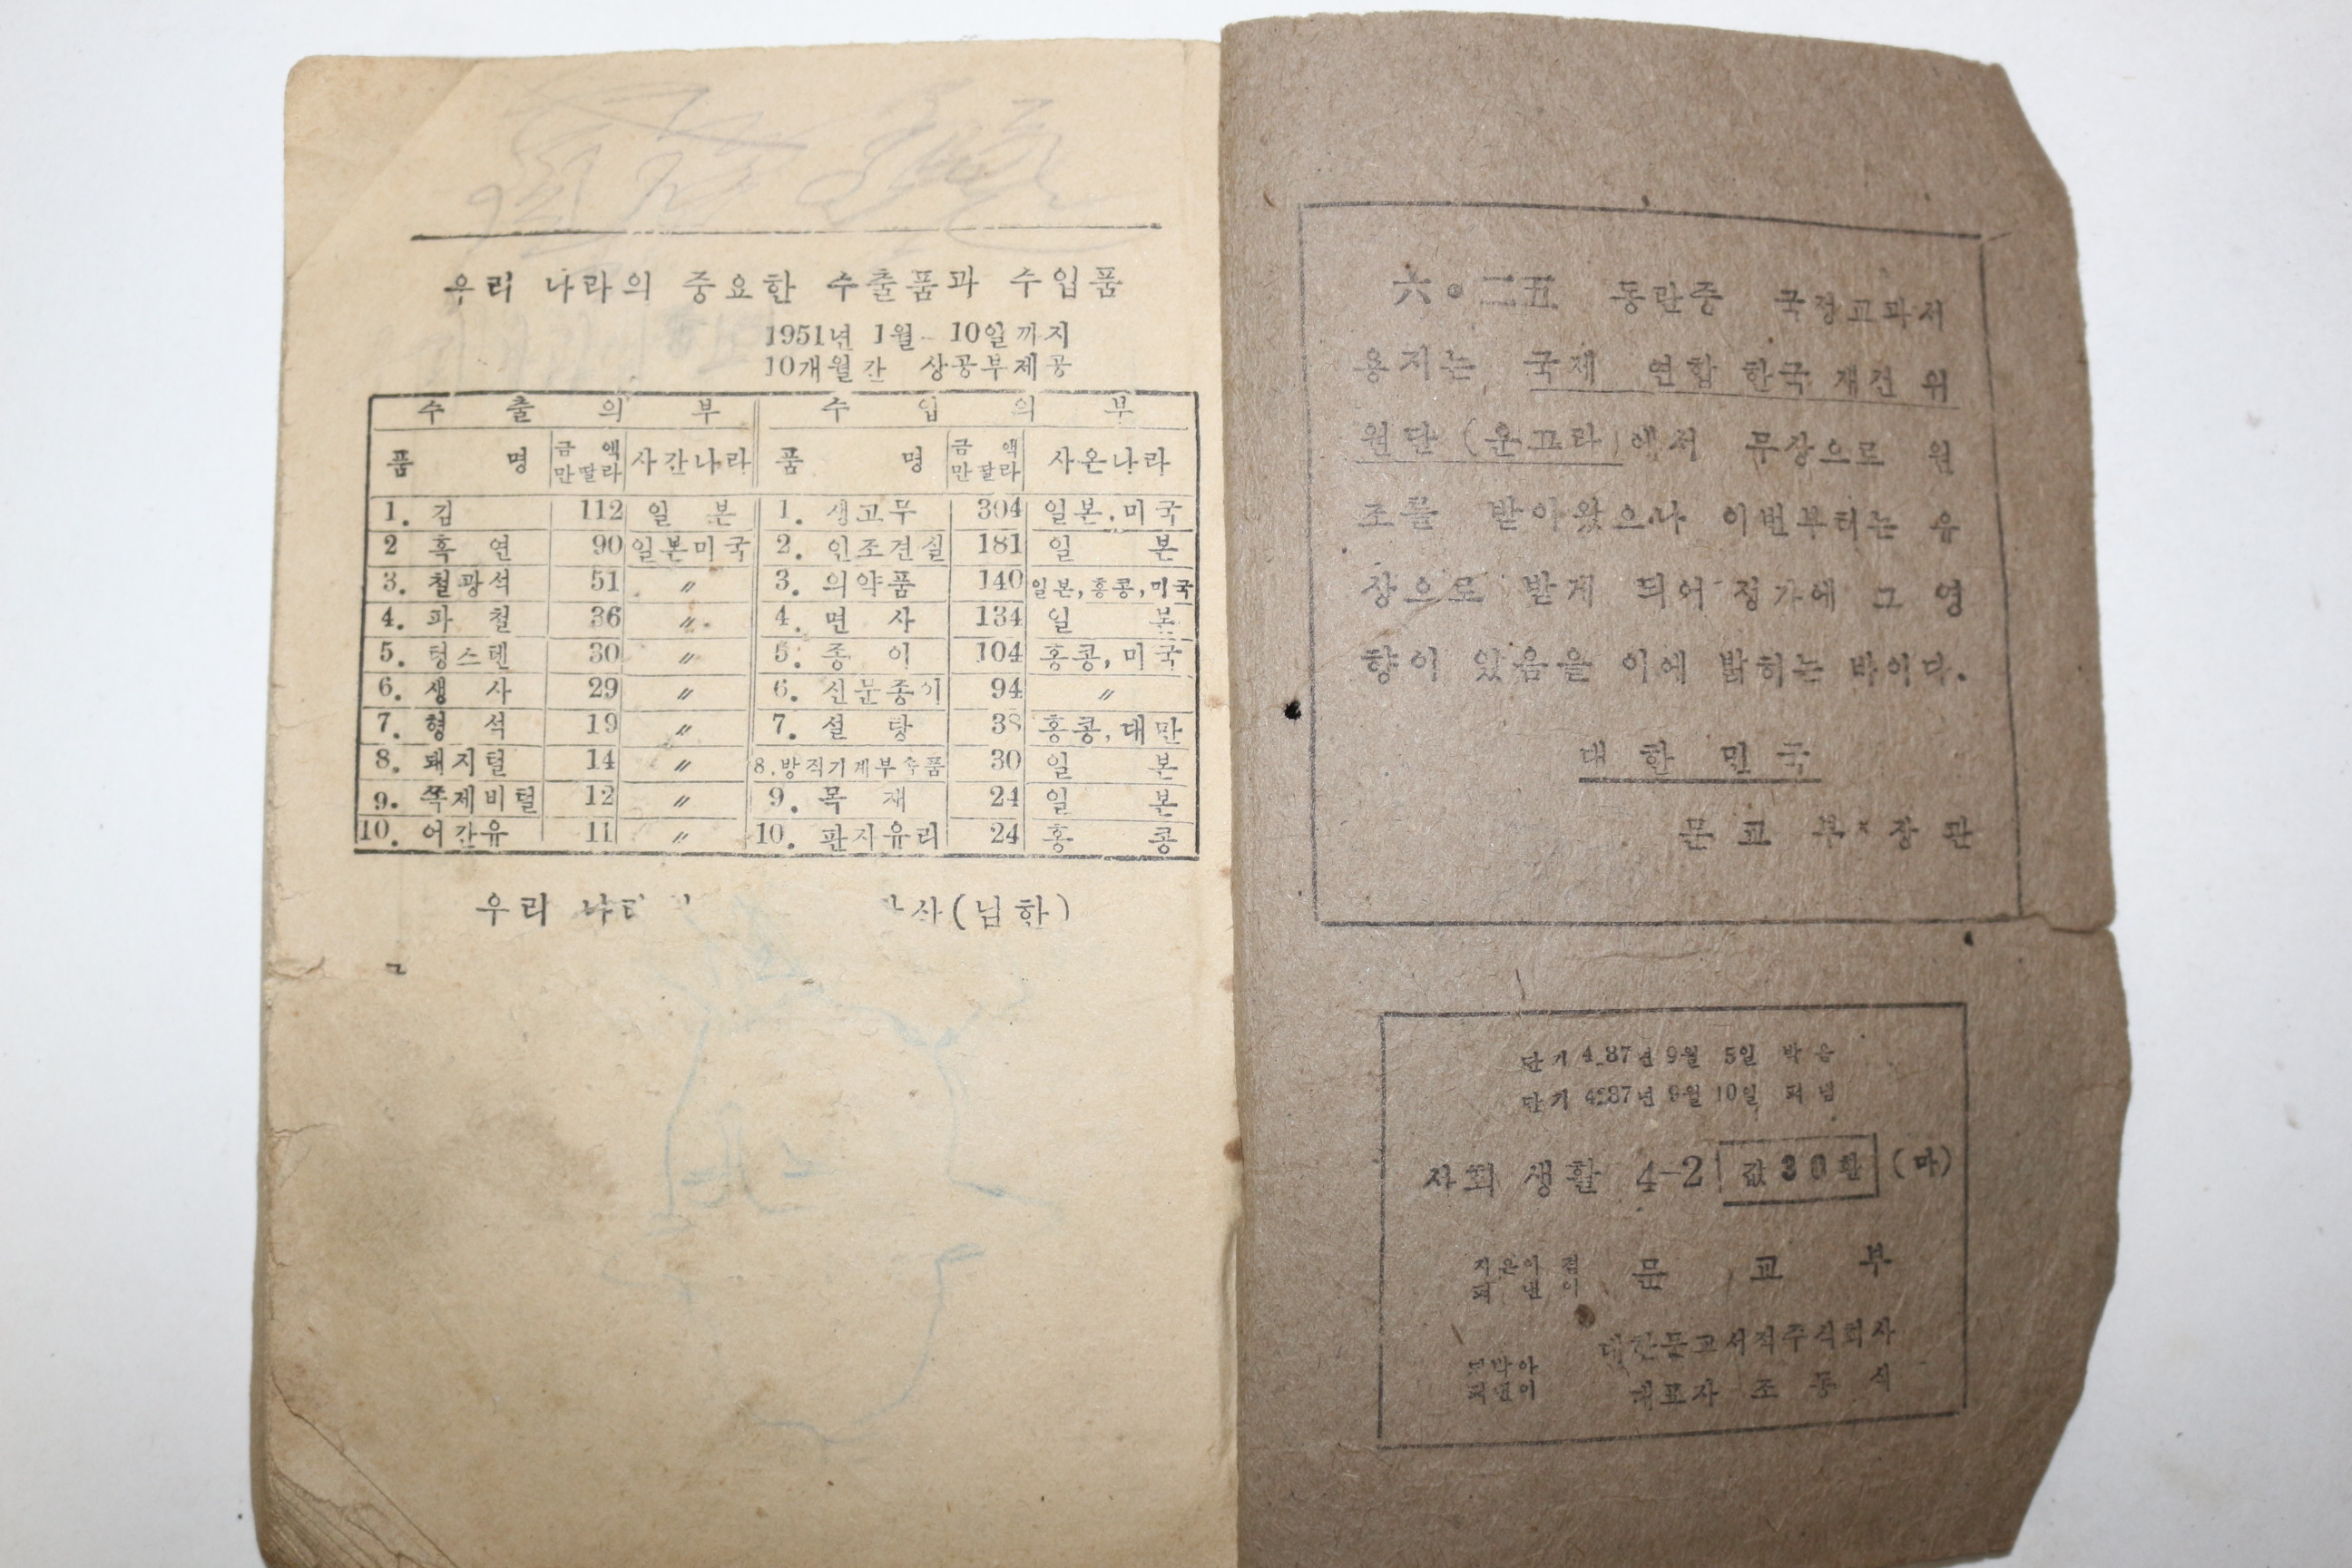 우리 나라의 중요한 수출품과 수입품
1951년 1월- 10일까지
10개월간 상공부제공
수 출 의 부 수 입 의 부
품 명 금 액 만딸라 사간나라 품 명 금 액 만딸라 사온나라
1. 김 112 일 본 1. 생고무 304 일본, 미국
2 흑 연 90 일본미국 2. 인조견실 181 일 본
3. 철광석 51 〃 3. 의약품 140 일본, 홍콩, 미국
4. 파 철 36 〃 4. 면 사 134 일 본
5. 텅스텐 30 〃 5. 종 이 104 홍콩, 미국
6. 생 사 29 〃 6. 신문종이 94 〃
7. 형 석 19 〃 7. 설 탕 38 홍콩, 대만
8. 돼지털 14 〃 8. 방직기계부속품 30 일 본
9. 쪽제비털 12 〃 9. 목 재 24 일 본
10. 어간유 11 〃 10. 판자유리 24 홍 콩
우리 (남한)
六·二五 동란중 국정교과서
용지는 국제 연합 한국 재건 위
원단 (운끄라)에서 무상으로 원
조를 받아왔으나 이번부터는 유
상으로 받게 되어 정가에 그 영
향이 있음을 이에 밝히는 바이다.
대 한 민 국
문 교 부 장 관
단기 4287년 9월 5일 박음
단기 4287년 9월 10일 펴냄
사회 생활 4-2 값 30환 (마)
지은이 겸
펴 낸 이 문 교 부
대한문교서적주식회사
펴낸이 대표자 조 동 식